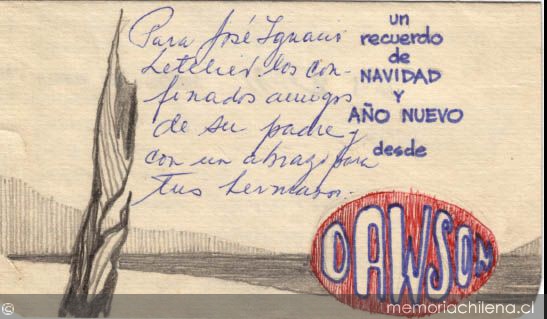 Para José Ignacio
Letelier. los con-
finados amigos
de su padre y
con un abrazo para
tus hermanos.
un
recuerdo
de
NAVIDAD
Y
AÑO NUEVO
desde
DAWSON
© memoriachilena.cl